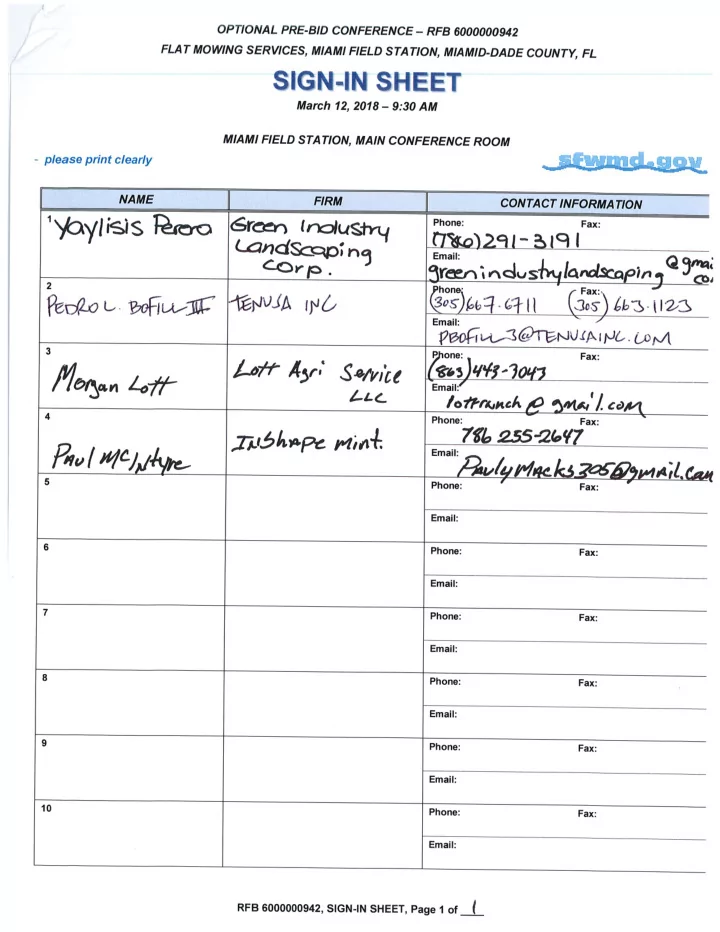 OPTIONAL PRE-BID CONFERENCE – RFB 6000000942
FLAT MOWING SERVICES, MIAMI FIELD STATION, MIAMID-DADE COUNTY, FL
SIGN-IN SHEET
March 12, 2018 – 9:30 AM
MIAMI FIELD STATION, MAIN CONFERENCE ROOM
- please print clearly
sfwmd.gov
NAME FIRM CONTACT INFORMATION
1 Yaylisis Perera Green Industry Landscaping Corp. Phone: Fax:
(786)291-3191
Email:
greenindustrylandscaping @gmai
co
2 PEDRO L. BOFILL III TENUSA INC Phone: Fax:
(305)667-6711 (305)663-1123
Email:
PBOFILL3@TENUSAINC.COM
3 Morgan Lott Lott Agri Service LLC Phone: Fax:
(863)443-3043
Email:
lottranch@gmail.com
4 Paul McIntyre INShape Mint. Phone: Fax:
786 255-2647
Email:
PaulyMacks305@gmail.com
5 Phone: Fax:
Email:
6 Phone: Fax:
Email:
7 Phone: Fax:
Email:
8 Phone: Fax:
Email:
9 Phone: Fax:
Email:
10 Phone: Fax:
Email:
RFB 6000000942, SIGN-IN SHEET, Page 1 of 1